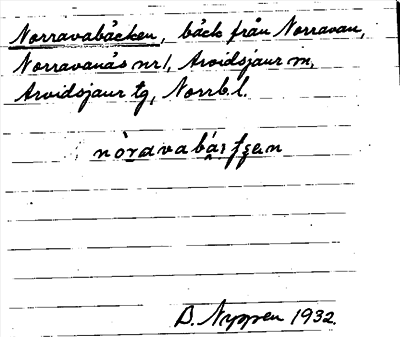 Norravabäcken, bäck från Norravan,
Norravanäs nr 1, Arvidsjaur sn,
Arvidsjaur tg, Norrb. l.
B. Nyppen 1932.